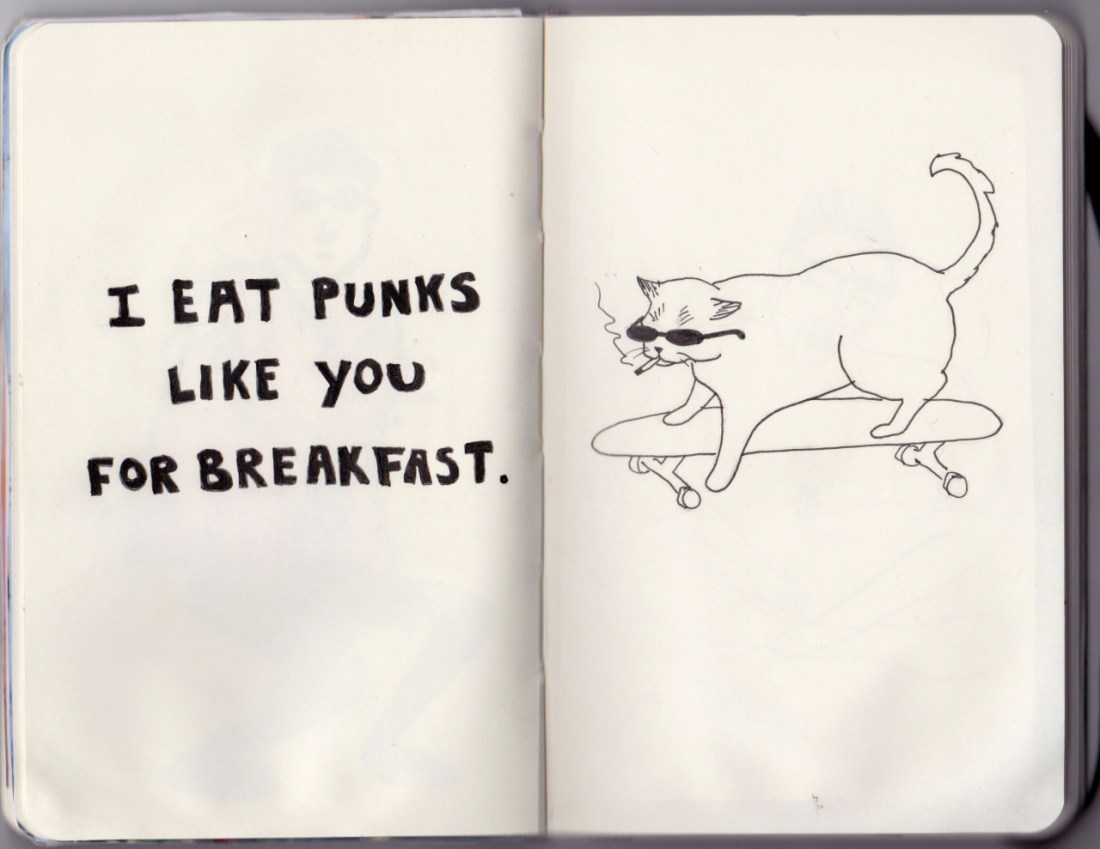 I EAT PUNKS
LIKE YOU
FOR BREAKFAST.